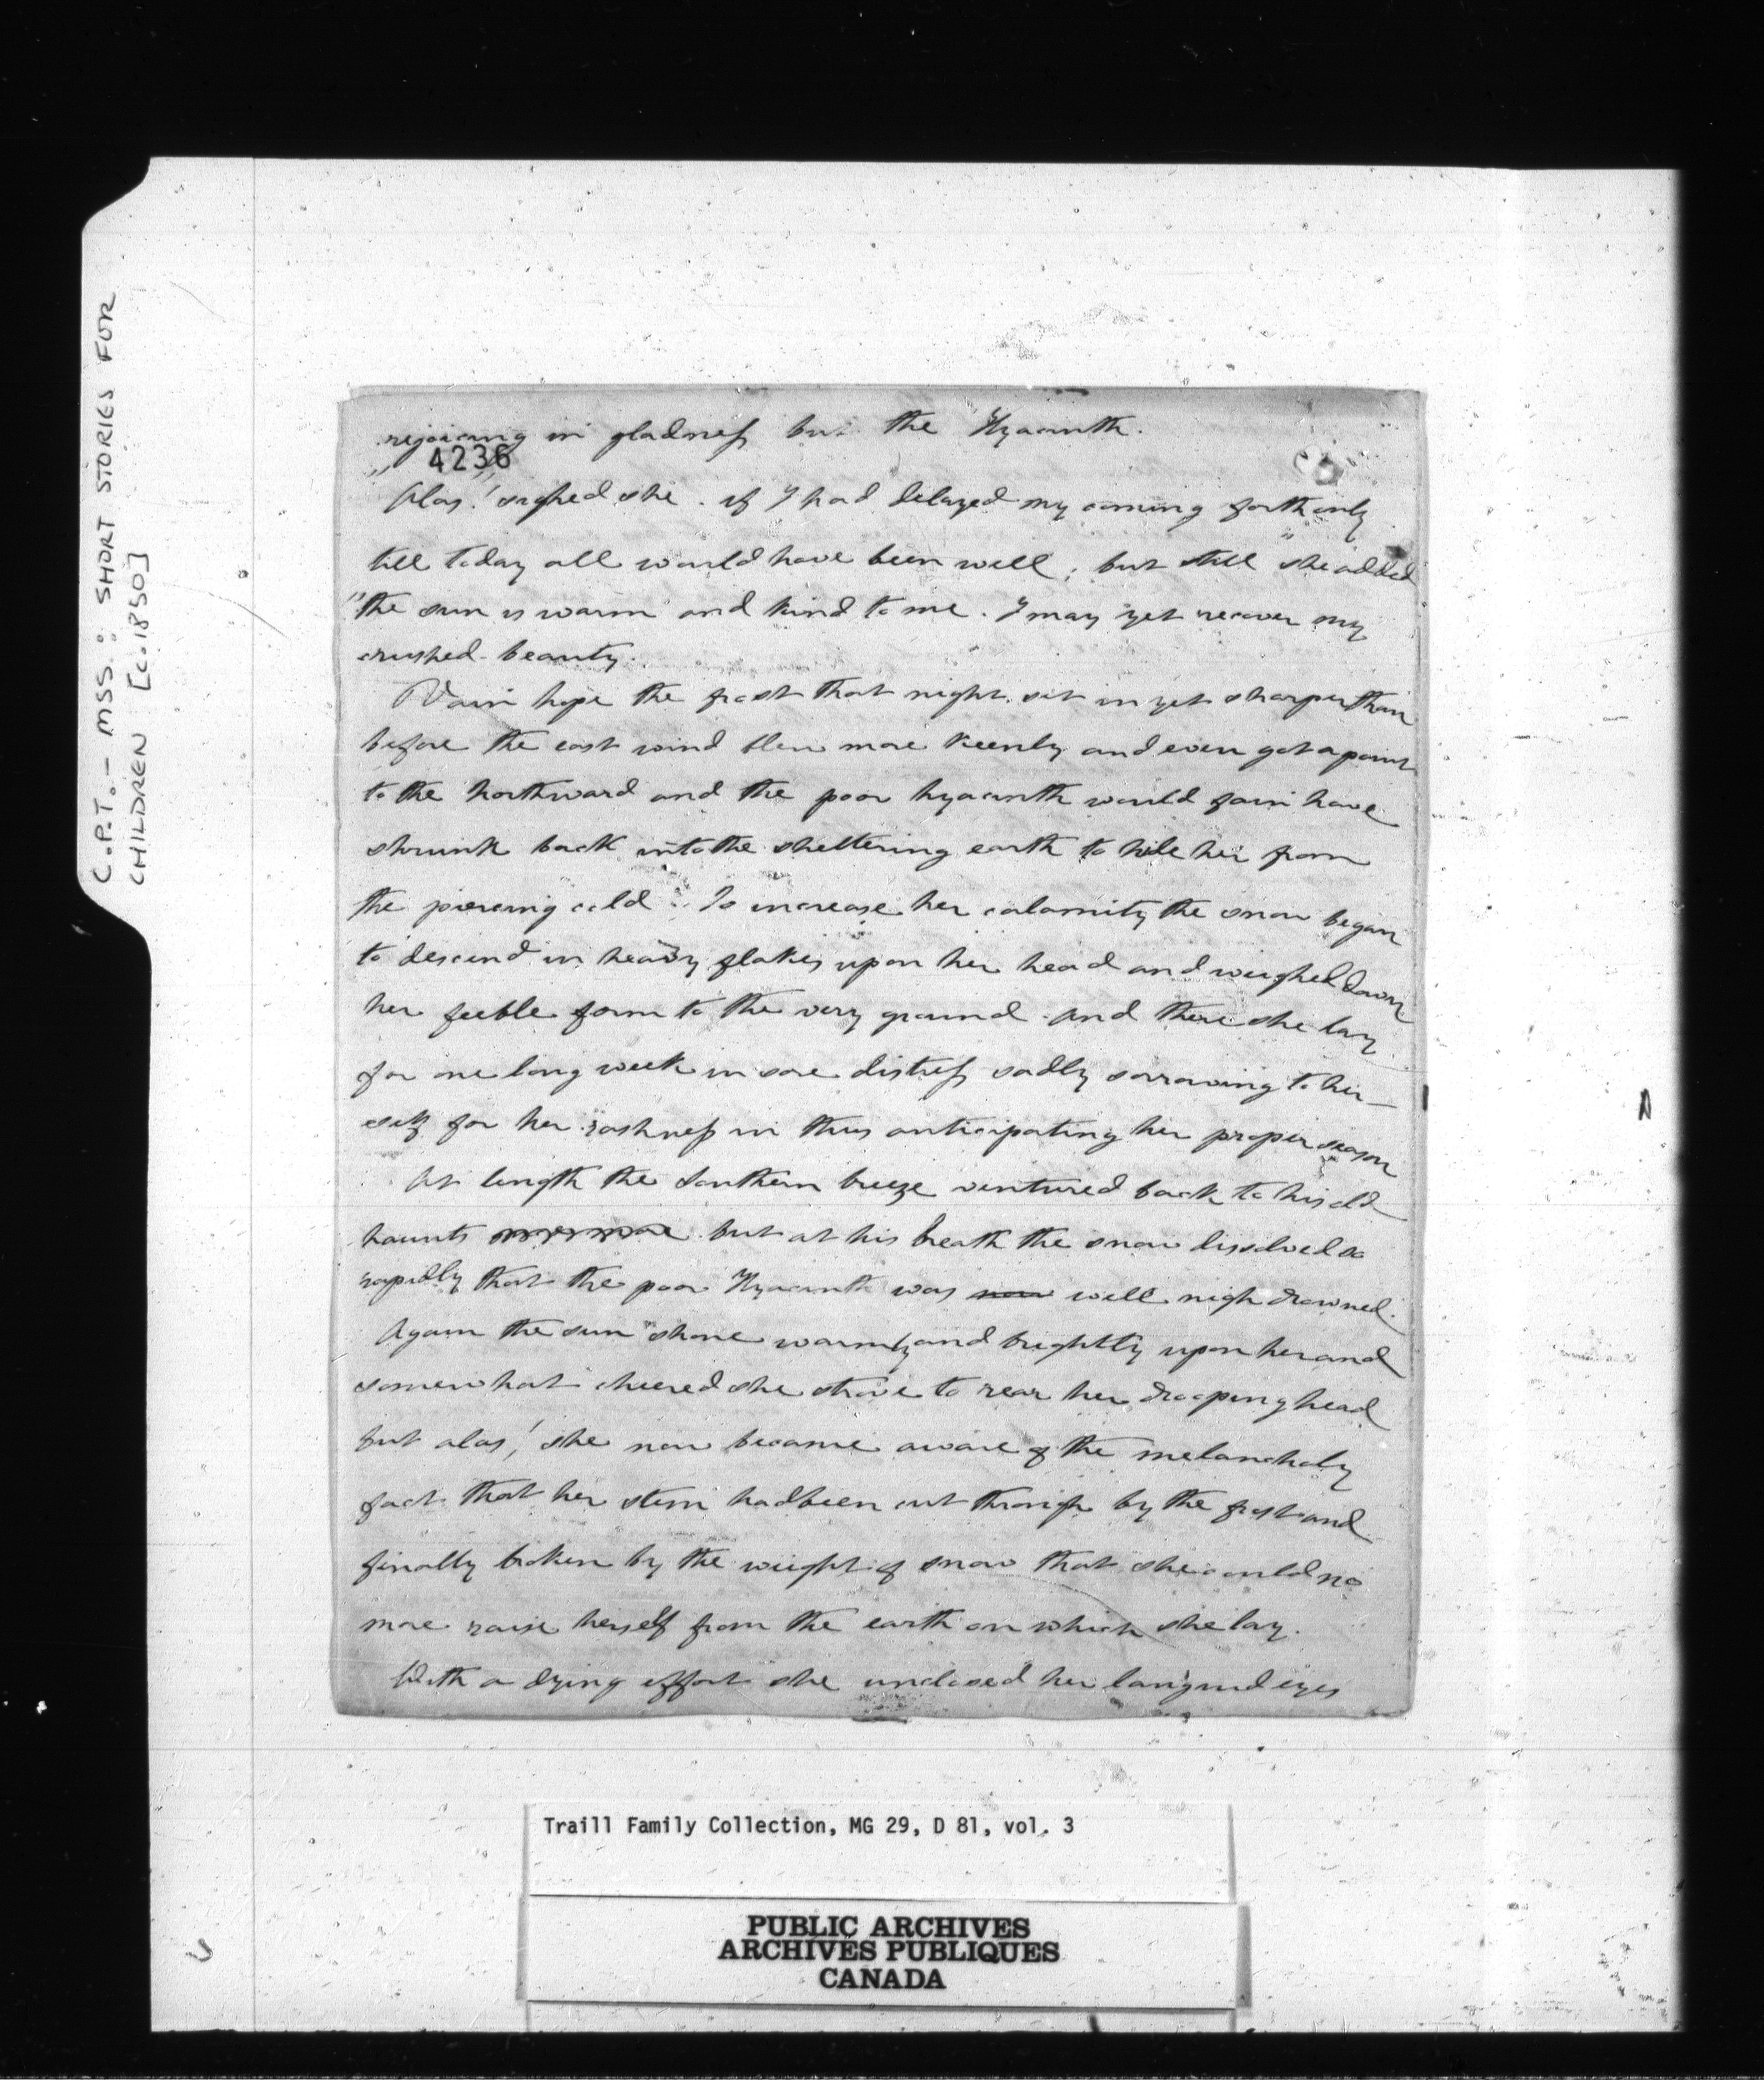 C.P.T. - MSS: SHORT STORIES FOR
CHILDREN [c.1850]
rejoicing in gladness but the Hyacinth.
4236
"Alas!" sighed she. if I had delayed my coming forth only
till today all would have been well; but still "she added
"the sun is warm and kind to me. I may yet recover my
crushed beauty.
Vain hope the frost that night set in yet sharper than
before the east wind blew more keenly and even got a point
to the northward and the poor hyacinth would fain have
shrunk back into the sheltering earth to hide her from
the piercing cold. To increase her calamity the snow began
to descend in heavy flakes upon her head and weighed down
her feeble form to the very ground. And there she lay
for one long week in sore distress sadly sorrowing to her-
self for her rashness in thus anticipating her proper season
At length the Southern breeze ventured back to his old
haunts but at his breath the snow dissolved so
rapidly that the poor Hyacinth was now well nigh drowned.
Again the sun shone warmly and brightly upon her and
somewhat cheered she strove to rear her drooping head
but alas! she now became aware of the melancholy
fact that her stem had been cut through by the frost and
finally broken by the weight of snow that she could no
more raise herself from the earth on which she lay.
With a dying effort she unclosed her languid eyes
Traill Family Collection, MG 29, D 81, vol. 3
PUBLIC ARCHIVES
ARCHIVES PUBLIQUES
CANADA